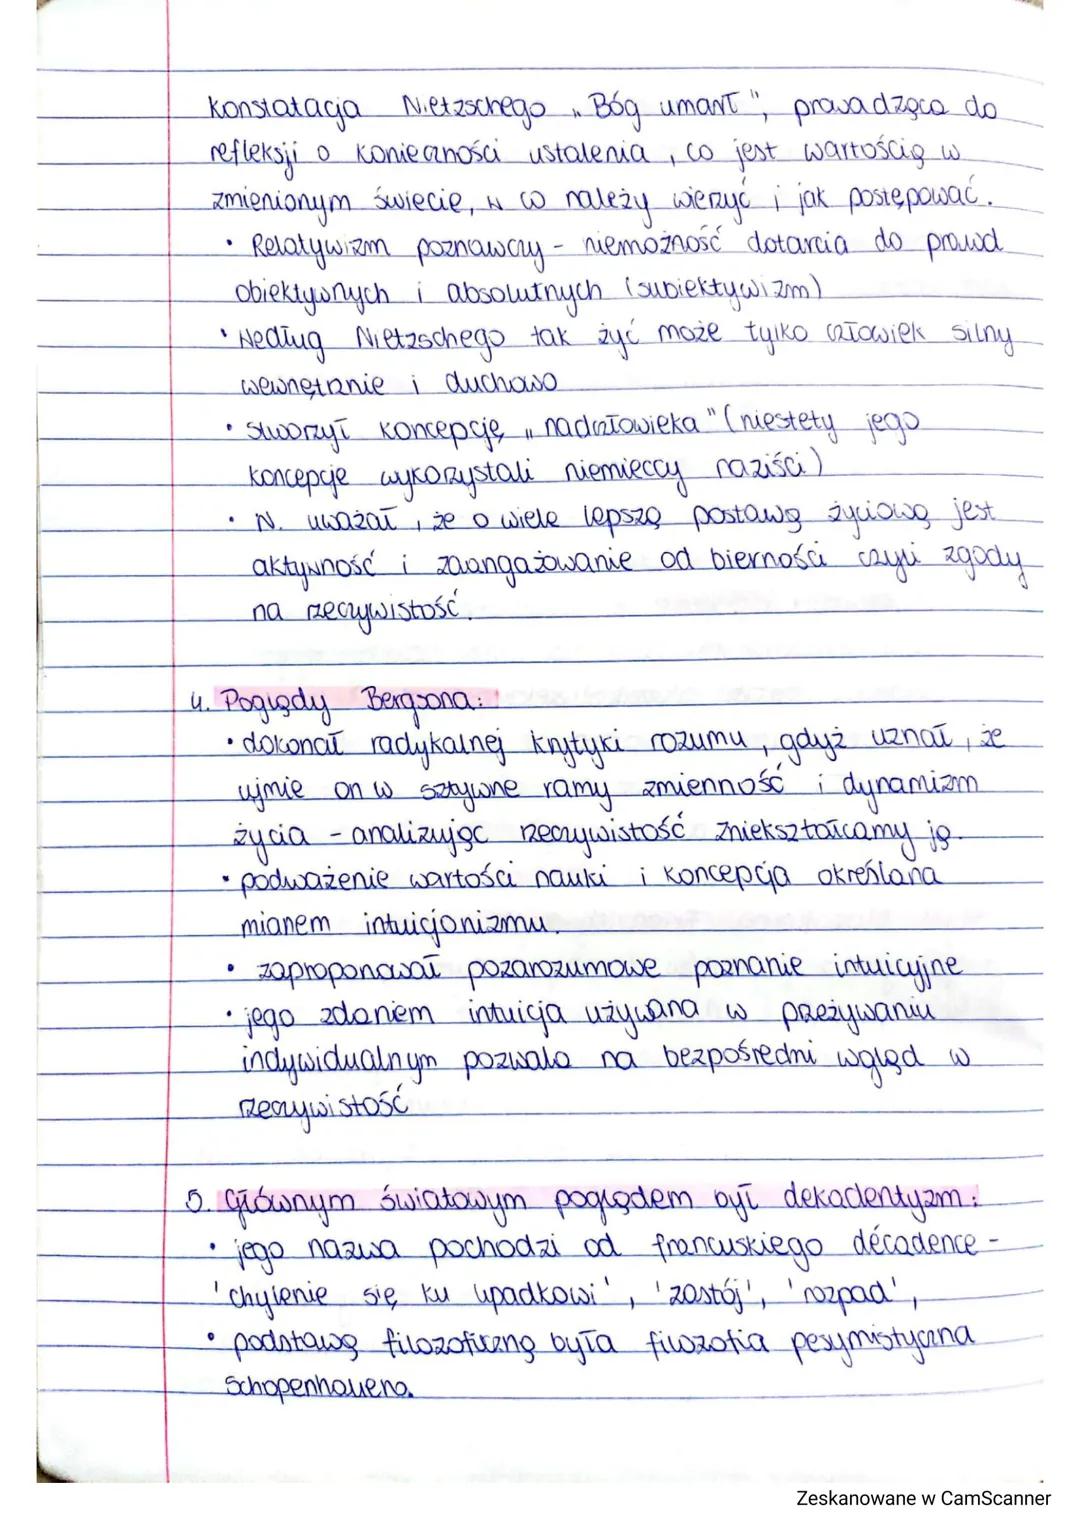 konstatacja Nietzschego „Bóg umarł", prowadząca do
refleksji o konieczności ustalenia, co jest wartością w
zmienionym świecie, w co należy wierzyć i jak postępować.
• Relatywizm poznawczy - niemożność dotarcia do prawd
obiektywnych i absolutnych (subiektywizm)
• Według Nietzschego tak żyć może tylko człowiek silny
wewnętrznie i duchowo
• stworzył koncepcję „nadczłowieka" (niestety jego
koncepcje wykorzystali niemieccy naziści)
• N. uważał, że o wiele lepszą postawą życiową jest
aktywność i zaangażowanie od bierności czyli zgody
na rzeczywistość.
4. Poglądy Bergsona:
• dokonał radykalnej krytyki rozumu, gdyż uznał, że
ujmie on w sztywne ramy zmienność i dynamizm
życia - analizując rzeczywistość zniekształcamy ją.
• podważenie wartości nauki i koncepcja określana
mianem intuicjonizmu.
• zaproponował pozarozumowe poznanie intuicyjne
• jego zdaniem intuicja używana w przeżywaniu
indywidualnym pozwala na bezpośredni wgląd w
rzeczywistość
5. Głównym światowym poglądem był dekadentyzm:
• jego nazwa pochodzi od francuskiego décadence -
'chylenie się ku upadkowi', 'zastój', 'rozpad',
• podstawą filozoficzną była filozofia pesymistyczna
Schopenhauera.
Zeskanowane w CamScanner